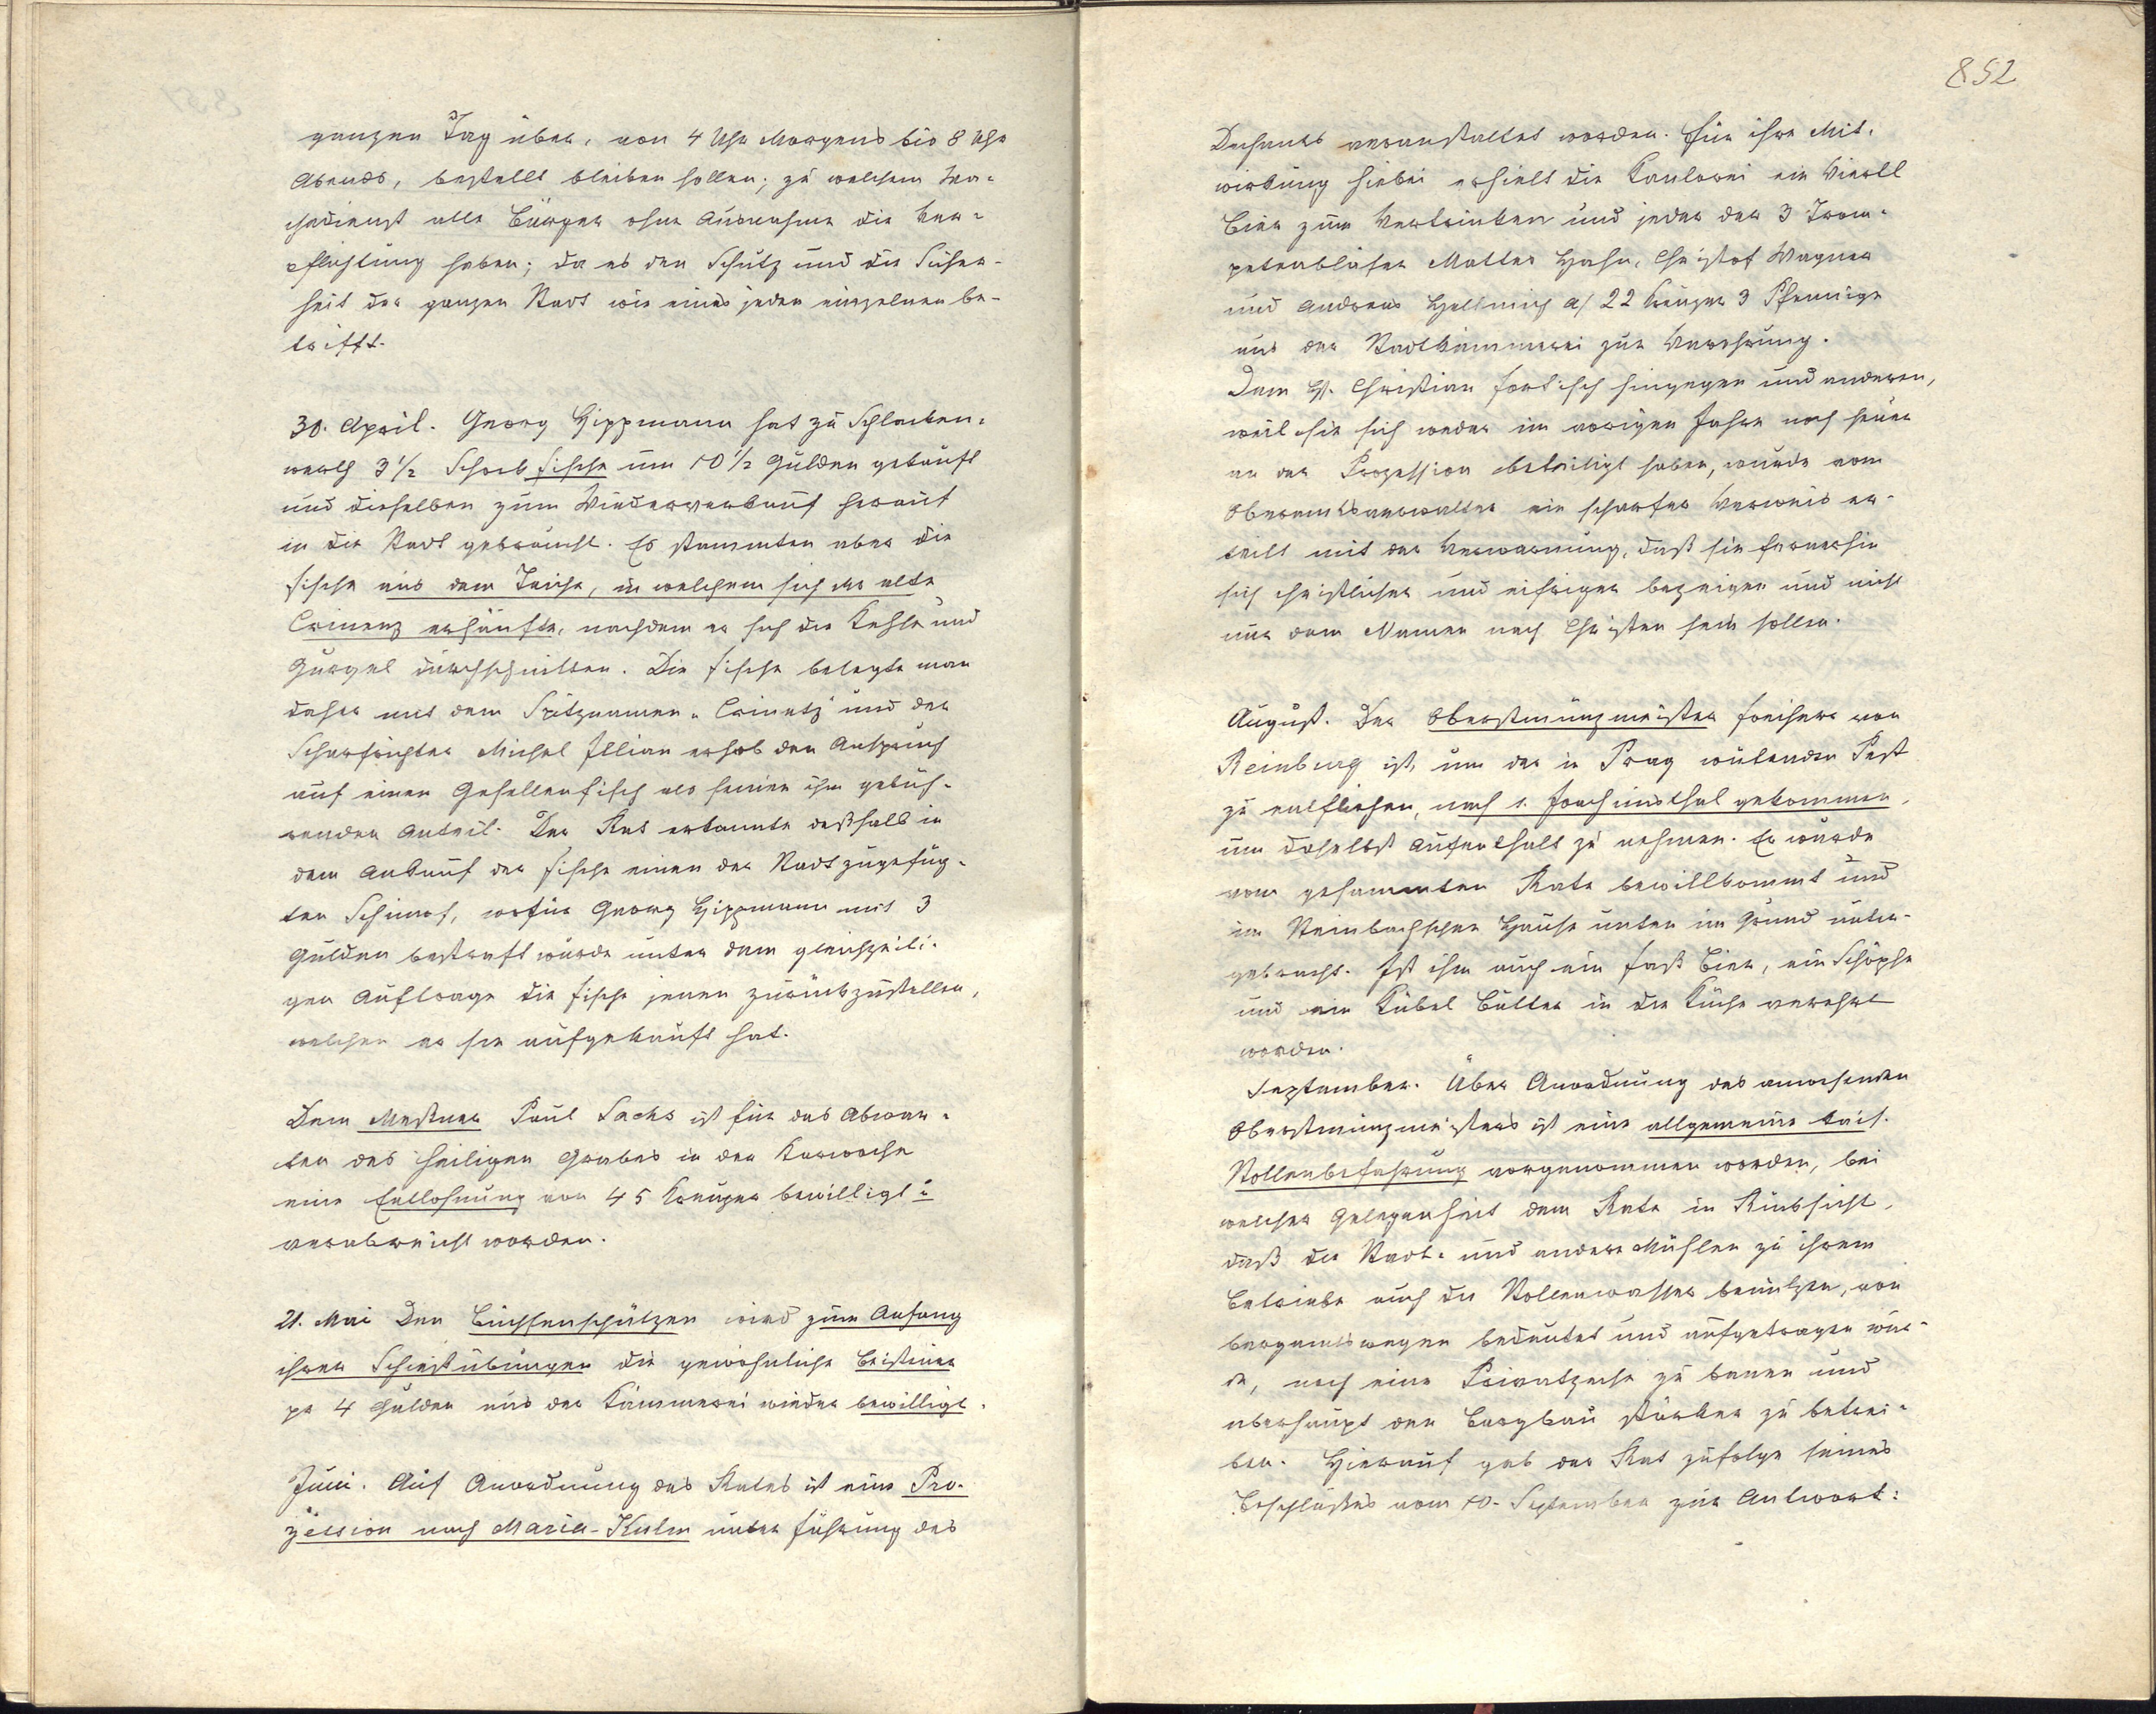 ganzen Tag über, von 4 Uhr Morgens bis 8 Uhr
Abends, bestellt bleiben sollen; zu welchem Wa-
chedienst alle Bürger ohne Ausnahme die Ver-
pflichtung haben; da es den Schutz und die Sicher-
heit der ganzen Stadt wie eines jeden einzelnen be-
trifft.
30. April. Georg Hippmann hat zu Schlacken-
werth 3 1/2 Schock Fische um 10 1/2 Gulden gekauft
und dieselben zum Wiederverkauf herauf
in die Stadt gebracht. Es stammten aber die
Fische aus dem Teiche, in welchem sich der alte
Crinenz ersäufte, nachdem er sich die Kehle und
Gurgel durchschnitten. Die Fische belegte man
daher mit dem Spitznamen „Crinetz" und der
Scharfrichter Michel Illian erhob den Anspruch
auf einen Gesellenfisch als seinen ihm gebüh-
renden Anteil. Der Rat erkannte deßhalb in
dem Ankauf der Fische einen der Stadt zugefüg-
ten Schimpf, wofür Georg Hippmann mit 3
Gulden bestraft wurde unter dem gleichzeiti-
gen Auftrage die Fische jenen zurückzustellen,
welchen er sie aufgekauft hat.
Dem Meßner Paul Sachs ist für das Abwar-
ten des heiligen Grabes in der Karwoche
eine Entlohnung von 45 Kreuzer bewilligt u
verabreicht worden.
21. Mai Den Büchsenschützen wird zum Anfang
ihrer Schießübungen die gewöhnliche Beisteuer
pr 4 Gulden aus der Kämmerei wieder bewilligt.
Juni. Auf Anordnung des Rates ist eine Pro-
zession nach Maria-Kulm unter Führung des
852
Dechants veranstaltet worden. Für ihre Mit-
wirkung hiebei erhielt die Kantorei ein Viertl
Bier zum Vertrinken und jeder der 3 Trom-
petenbläser Mattes Hahn, Christof Wagner
und Andreas Hellmich a/ 22 Kreuzer 3 Pfennige
aus der Stadtkämmerei zur Verehrung.
Dem H. Christian Fortisch hingegen und anderen,
weil sie sich weder im vorigen Jahre noch heuer
an der Prozession beteiligt haben, wurde vom
Oberamtsverwalter ein scharfer Verweis er-
teilt mit der Verwarnung, daß sie fernerhin
sich christlicher und eifriger bezeigen und nicht
nur dem Namen nach Christen sein sollen.
August. Der Oberstmünzmeister Freiherr von
Reinburg ist, um der in Prag wütenden Pest
zu entfliehen, nach s. Joachimsthal gekommen,
um daselbst Aufenthalt zu nehmen. Er wurde
vom gesammten Rate bewillkommt und
im Steinbachschen Hause unten im Grund unter-
gebracht. Ist ihm auch ein Faß Bier, ein Schöpse
und ein Kübel Butter in die Küche verehrt
worden.
September. Über Anordnung des anwesenden
Oberstmünzmeisters ist eine allgemeine kais.
Stollenbefahrung vorgenommen worden, bei
welcher Gelegenheit dem Rate in Rücksicht,
daß die Stadt- und andere Mühlen zu ihrem
Betriebe auch die Stollenwasser benützen, von
bergamtswegen bedeutet und aufgetragen wur-
de, noch eine Privatzeche zu bauen und
überhaupt den Bergbau stärker zu betrei-
ben. Hierauf gab der Rat zufolge seines
Beschlußes vom 10. September zur Antwort: